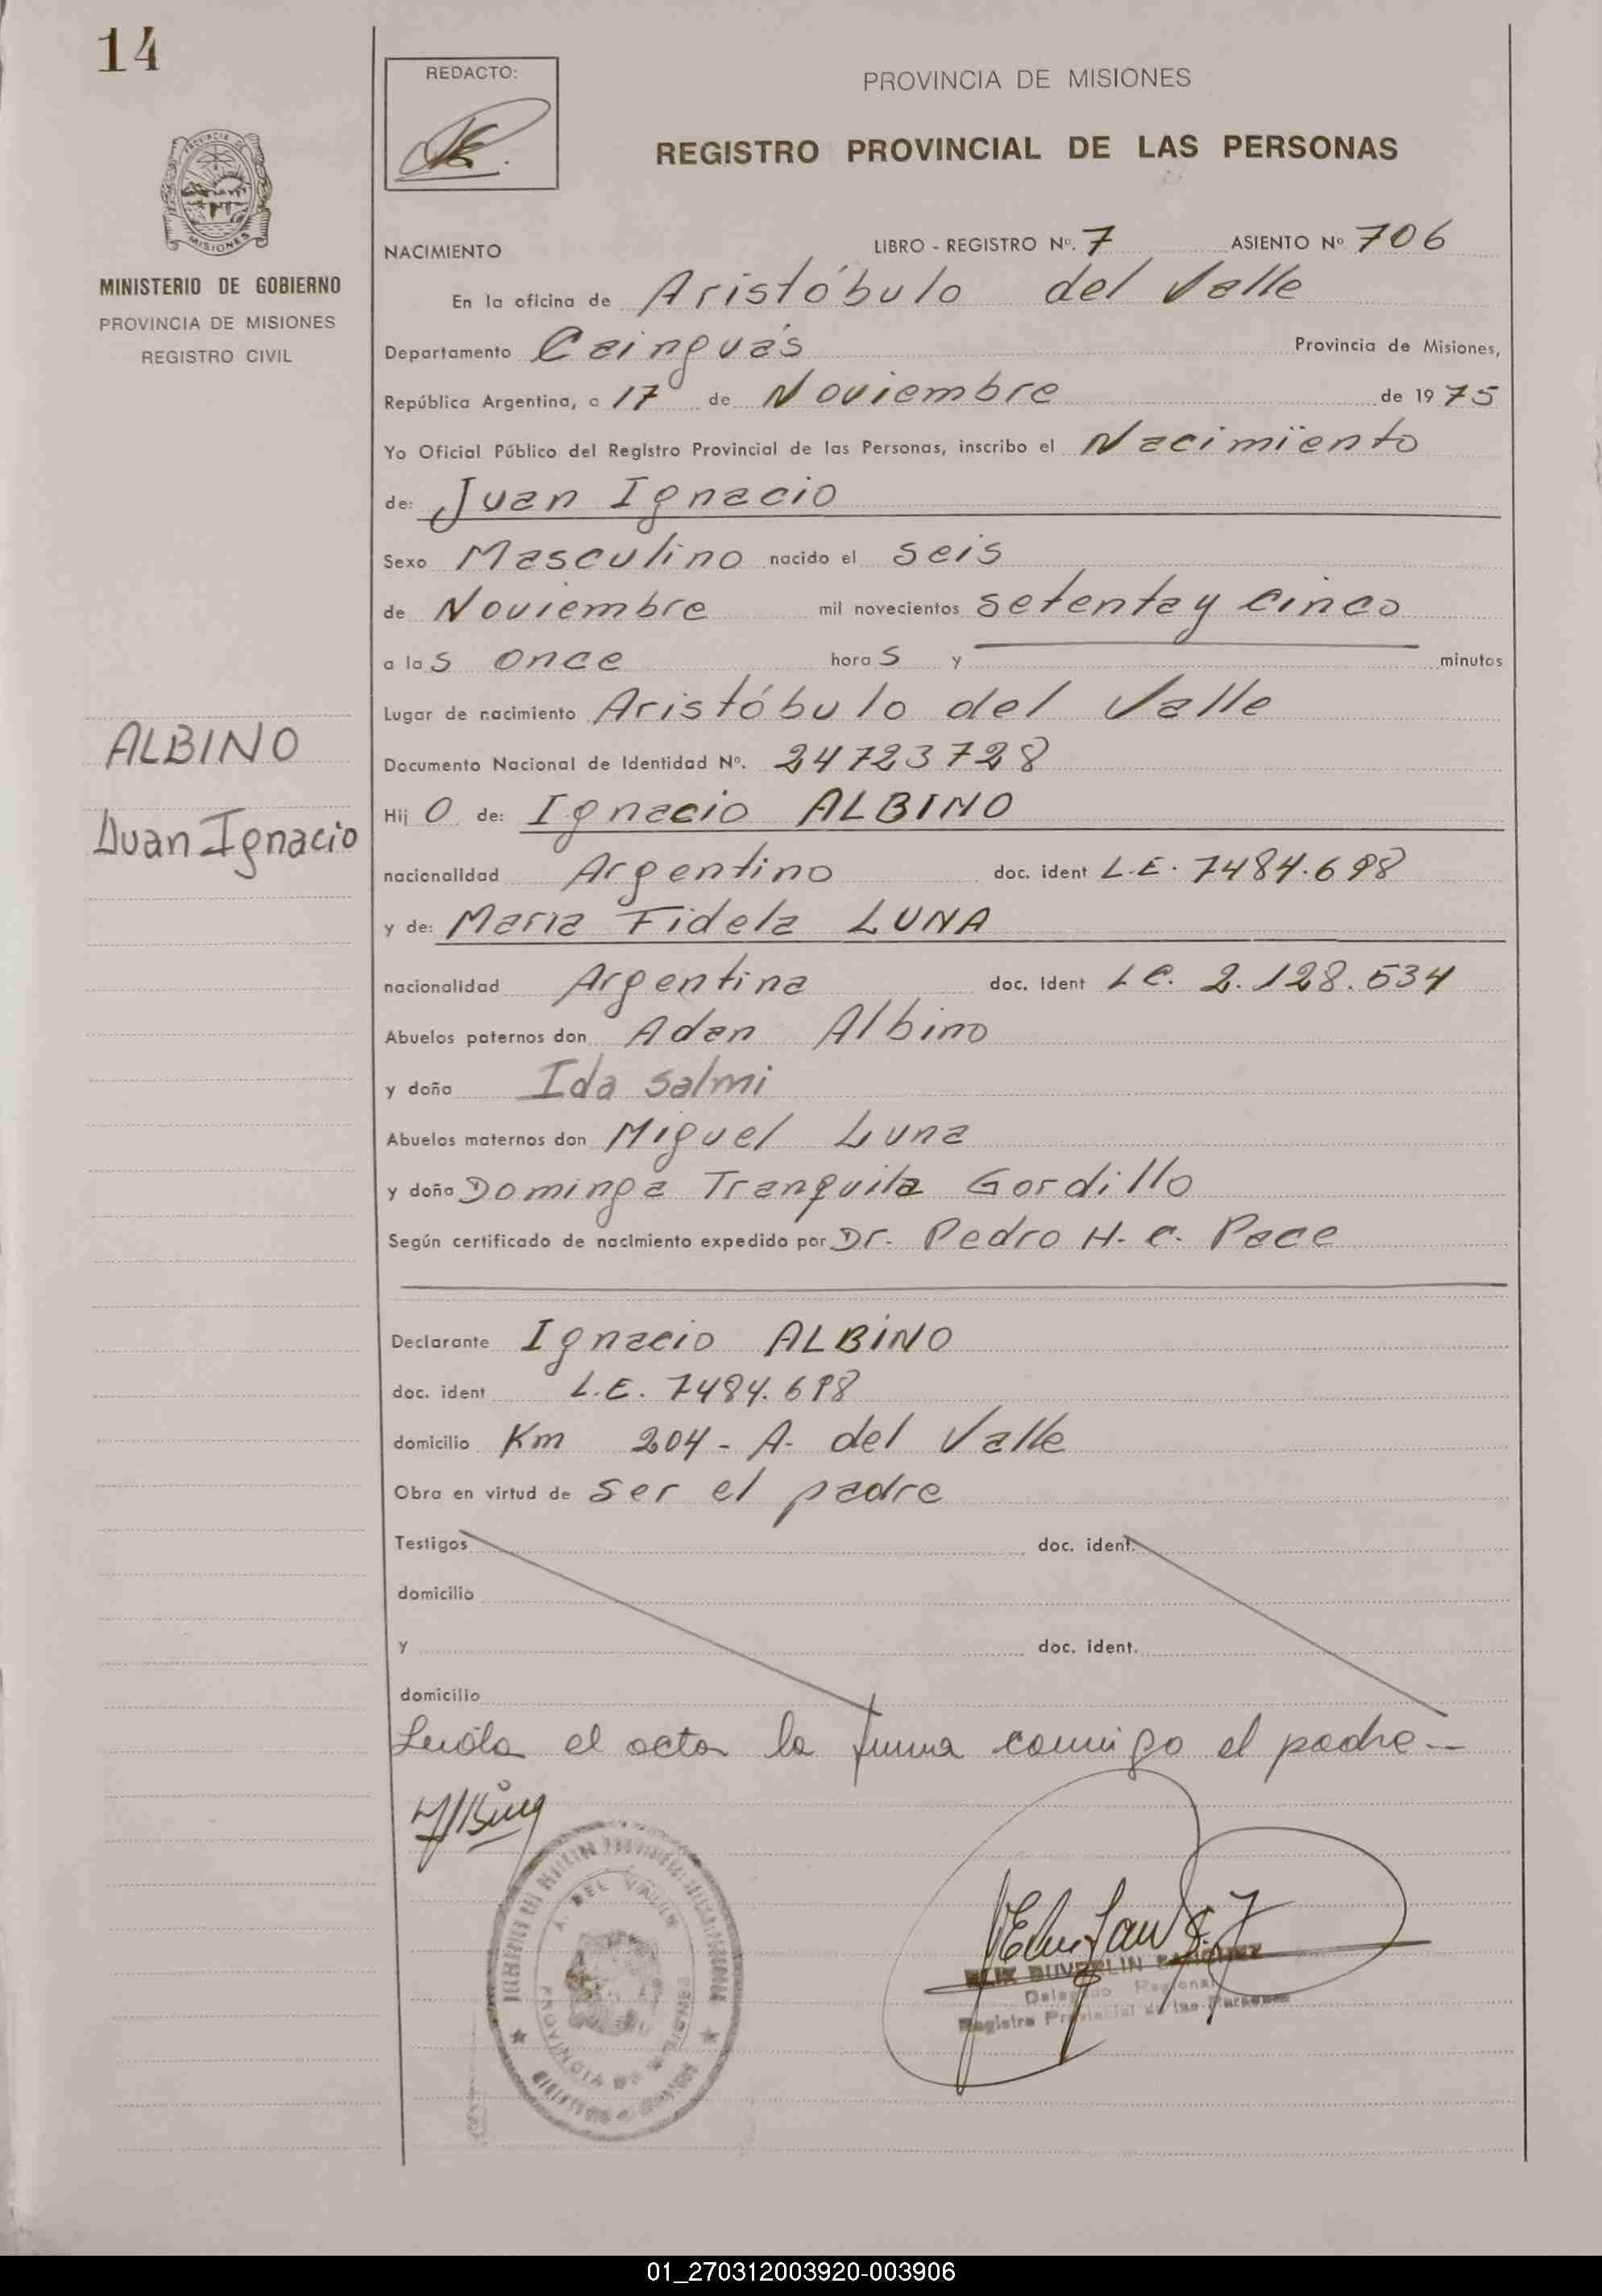 14
REDACTO:
PROVINCIA DE MISIONES
REGISTRO PROVINCIAL DE LAS PERSONAS
MISIONES
MINISTERIO DE GOBIERNO
PROVINCIA DE MISIONES
REGISTRO CIVIL
NACIMIENTO LIBRO - REGISTRO Nº. 7 ASIENTO Nº 706
En la oficina de Aristóbulo del Valle
Departamento Cainguás Provincia de Misiones,
República Argentina, a 17 de Noviembre de 1975
Yo Oficial Público del Registro Provincial de las Personas, inscribo el Nacimiento
de: Juan Ignacio
Sexo Masculino nacido el seis
de Noviembre mil novecientos setenta y cinco
a las once horas y minutos
Lugar de nacimiento Aristóbulo del Valle
ALBINO
Juan Ignacio
Documento Nacional de Identidad Nº. 24723728
Hijo de: Ignacio ALBINO
nacionalidad Argentino doc. ident L.E. 7484.698
y de: Maria Fidela LUNA
nacionalidad Argentina doc. Ident L C. 2.128.534
Abuelos paternos don Adan Albino
y doña Ida Salmi
Abuelos maternos don Miguel Luna
y doña Dominga Tranquila Gordillo
Según certificado de nacimiento expedido por Dr. Pedro H. C. Pace
Declarante Ignacio ALBINO
doc. ident L.E. 7484.698
domicilio Km 204 - A. del Valle
Obra en virtud de ser el padre
Testigos doc. ident.
domicilio
y doc. ident.
domicilio
Leida el acta la firma conmigo el padre.-
A. DEL VALLE
PROVINCIA DE
Delegado Regional
Registro Provincial de las Personas
01_270312003920-003906